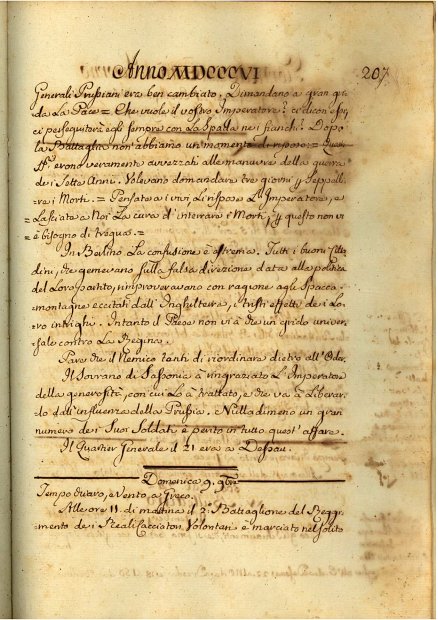 Anno MDCCCVI
207
Generali Prussiani era ben cambiato. Dimandano a gran gri-
da La Pace = Che vuole il vostro Imperatore? ci dicon essi,
ci perseguiterà egli sempre con La Spada ne i fianchi? Dopo
la Battaglia non abbiamo un momento di riposo =
erono veramente avvezzati alle manuvre della guerra
de i Sette Anni. Volevano domandare tre giorni p Seppelli-
re i Morti. = Pensate a i vivi Li rispose L'Imperatore, e
= Lasciate a Noi La cura d'interrare i Morti; p questo non vi
= è bisogno di tregua. =
In Berlino La confusione è estrema. Tutti i buoni Citta-
dini, che gemevano sulla falsa direzione data alla politica
del Loro partito, rimproveravano con ragione agli Spacca-
montagne eccitati dall'Inghilterra, i tristi effetti de i Lo-
ro intrighi. Intanto il Paese non vi à che un grido univer-
sale contro La Regina.
Pare che il Nemico tenti di riordinare dietro all'Oder.
Il Sovrano di Sassonia à ringraziato L'Imperatore
della generosità, con cui Lo à trattato, e che va à Liberar-
lo dall'influenza della Prussia. Nulla dimeno un gran
numero de i Suoi Soldati è perito in tutto quest'affare.
Il Quartier Generale il 21 era a Dessau.
Domenica 9. 9bre
Tempo chiaro, e Vento a Greco.
Alle ore 11. di mattina il 2º Battaglione del Regg-
mento de i Reali Cacciatori Volontari è marciato nel solito